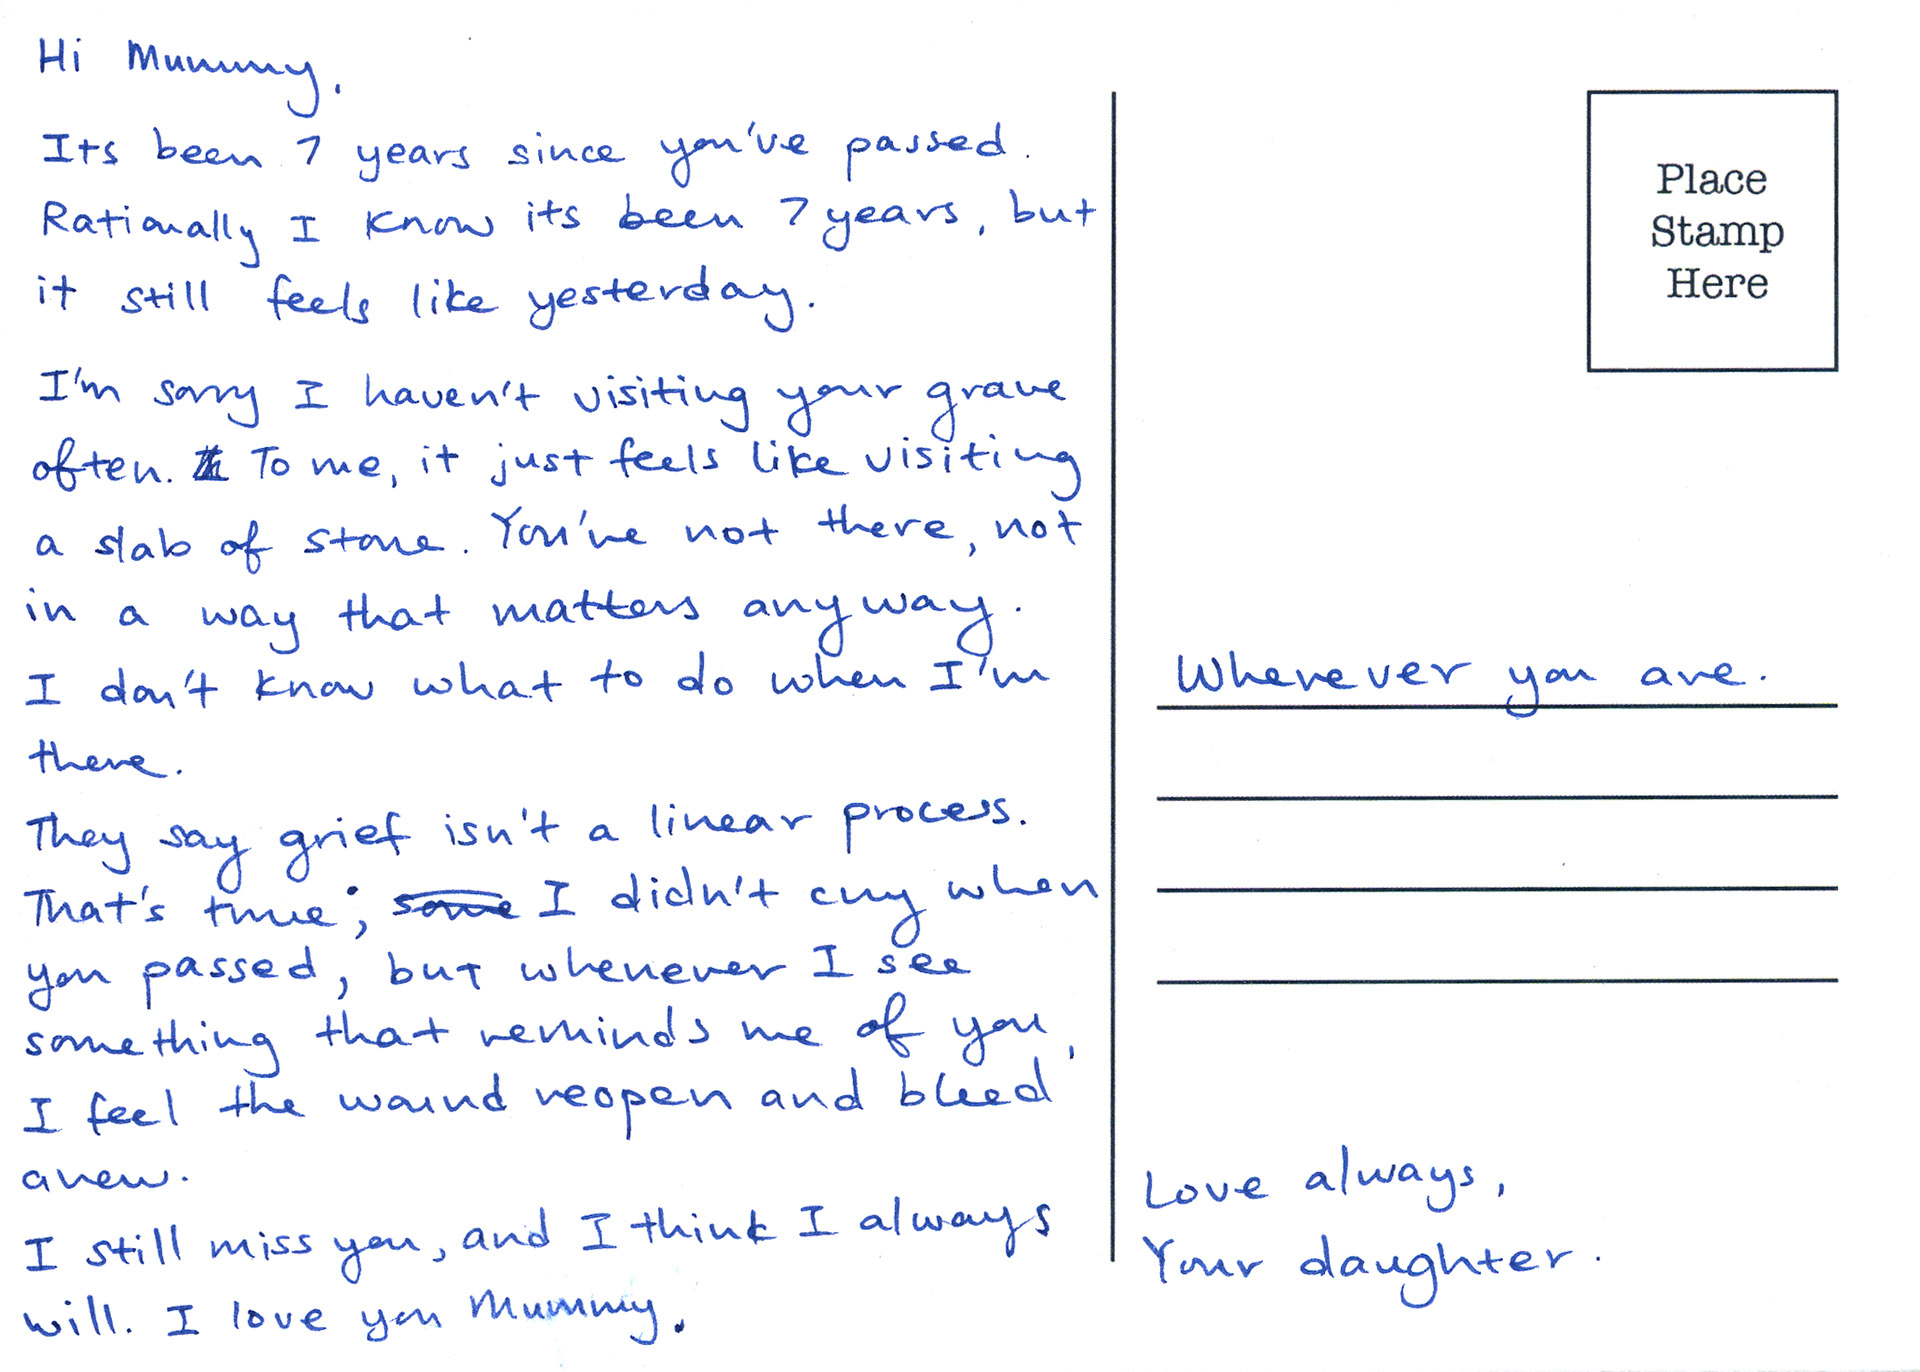 Hi Mummy.
Its been 7 years since you've passed.
Rationally I know its been 7 years, but
it still feels like yesterday.
I'm sorry I haven't visiting your grave
often. To me, it just feels like visiting
a slab of stone. You've not there, not
in a way that matters anyway.
I don't know what to do when I'm
there.
They say grief isn't a linear process.
That's true; some I didn't cry when
you passed, but whenever I see
something that reminds me of you,
I feel the wound reopen and bleed
anew.
I still miss you, and I think I always
will. I love you Mummy.
Place
Stamp
Here
Wherever you are.
Love always,
Your daughter.